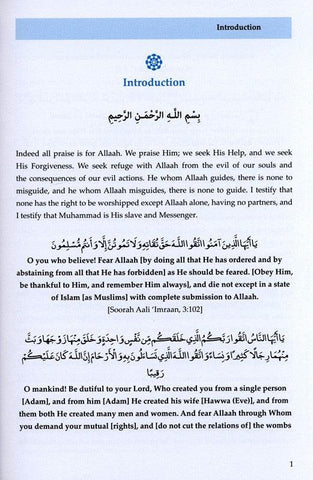 Introduction
Introduction
بِسْمِ اللَّهِ الرَّحْمَنِ الرَّحِيمِ
Indeed all praise is for Allaah. We praise Him; we seek His Help, and we seek
His Forgiveness. We seek refuge with Allaah from the evil of our souls and
the consequences of our evil actions. He whom Allaah guides, there is none to
misguide, and he whom Allaah misguides, there is none to guide. I testify that
none has the right to be worshipped except Allaah alone, having no partners, and
I testify that Muhammad is His slave and Messenger.
يَا أَيُّهَا الَّذِينَ آمَنُوا اتَّقُوا اللَّهَ حَقَّ تُقَاتِهِ وَلَا تَمُوتُنَّ إِلَّا وَأَنتُم مُّسْلِمُونَ
O you who believe! Fear Allaah [by doing all that He has ordered and by
abstaining from all that He has forbidden] as He should be feared. [Obey Him,
be thankful to Him, and remember Him always], and die not except in a state
of Islam [as Muslims] with complete submission to Allaah.
[Soorah Aali 'Imraan, 3:102]
يَا أَيُّهَا النَّاسُ اتَّقُوا رَبَّكُمُ الَّذِي خَلَقَكُم مِّن نَّفْسٍ وَاحِدَةٍ وَخَلَقَ مِنْهَا زَوْجَهَا وَبَثَّ
مِنْهُمَا رِجَالًا كَثِيرًا وَنِسَاءً وَاتَّقُوا اللَّهَ الَّذِي تَسَاءَلُونَ بِهِ وَالْأَرْحَامَ إِنَّ اللَّهَ كَانَ عَلَيْكُمْ
رَقِيبًا
O mankind! Be dutiful to your Lord, Who created you from a single person
[Adam], and from him [Adam] He created his wife [Hawwa (Eve)], and from
them both He created many men and women. And fear Allaah through Whom
you demand your mutual [rights], and [do not cut the relations of] the wombs
1